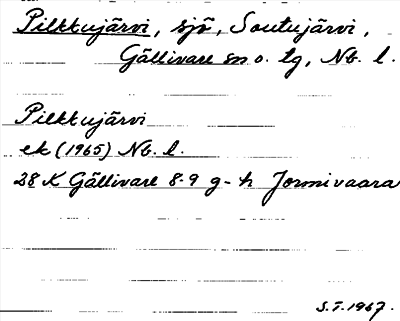 Pilkkujärvi, sjö, Soutujärvi,
Gällivare sn o. tg, Nb. l.
Pilkkujärvi
ek (1965) Nb. l.
28 K Gällivare 8-9 g-h Jormivaara
S.I. 1967.